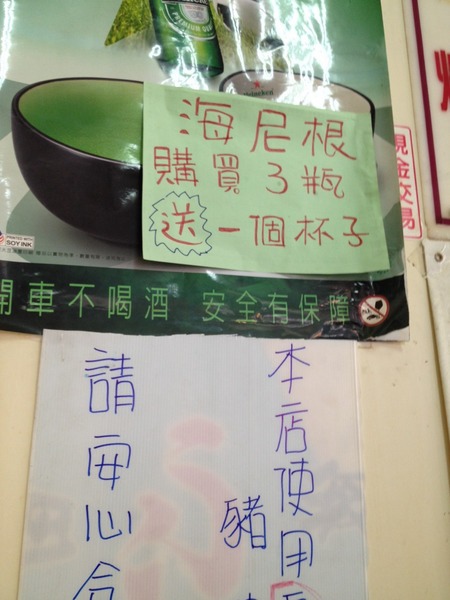 PREMIUM QU
Heineken
海尼根
購買3瓶
送一個杯子
PRINTED WITH
SOY INK
開車不喝酒 安全有保障
現金交易
本店使用
豬
請安心食